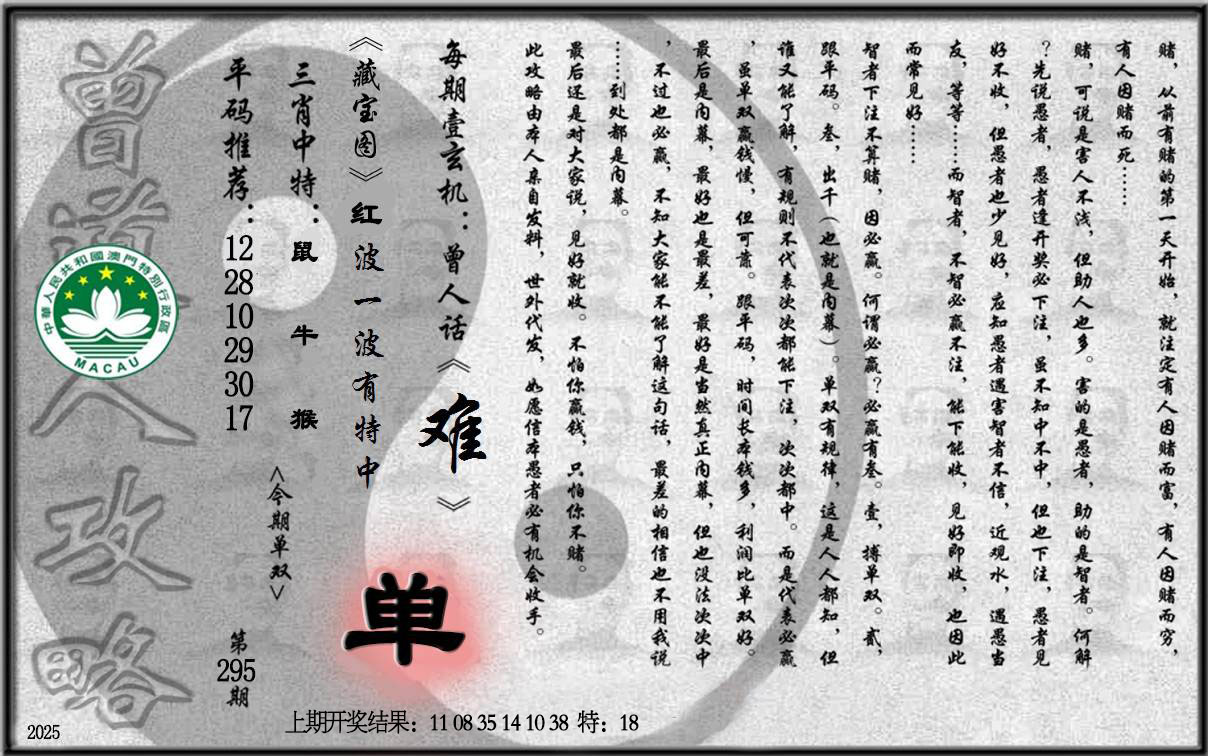 赌，从前有赌的第一天开始，就注定有人因赌而富，有人因赌而穷，
有人因赌而死……
赌，可说是害人不浅，但助人也多。害的是愚者，助的是智者。何解
？先说愚者，愚者逢开奖必下注，虽不知中不中，但也下注，愚者见
好不收，但愚者也少见好，应知愚者遇害智者不信，近观水，遇愚当
友，等等……而智者，不智必赢不注，能下能收，见好即收，也因此
而常见好……
智者下注不算赌，因必赢。何谓必赢？必赢有叁。壹，搏单双。贰，
跟平码。叁，出千（也就是内幕）。单双有规律，这是人人都知，但
谁又能了解，有规则不代表次次都能下注，次次都中。而是代表必赢
，虽单双赢钱慢，但可靠。跟平码，时间长本钱多，利润比单双好。
最后是内幕，最好也是最差，最好是当然真正内幕，但也没法次次中
，不过也必赢，不知大家能不能了解这句话，最差的相信也不用我说
……到处都是内幕。
最后还是对大家说，见好就收。不怕你赢钱，只怕你不赌。
此攻略由本人亲自发料，世外代发，如愿信本愚者必有机会收手。
每期壹玄机：曾人话《难》
《藏宝图》红波一波有特中
单
三肖中特：鼠牛猴
<今期单双>
平码推荐：12 28 10 29 30 17
第295期
曾道人攻略
中華人民共和國澳門特別行政區
MACAU
上期开奖结果：11 08 35 14 10 38 特：18
2025